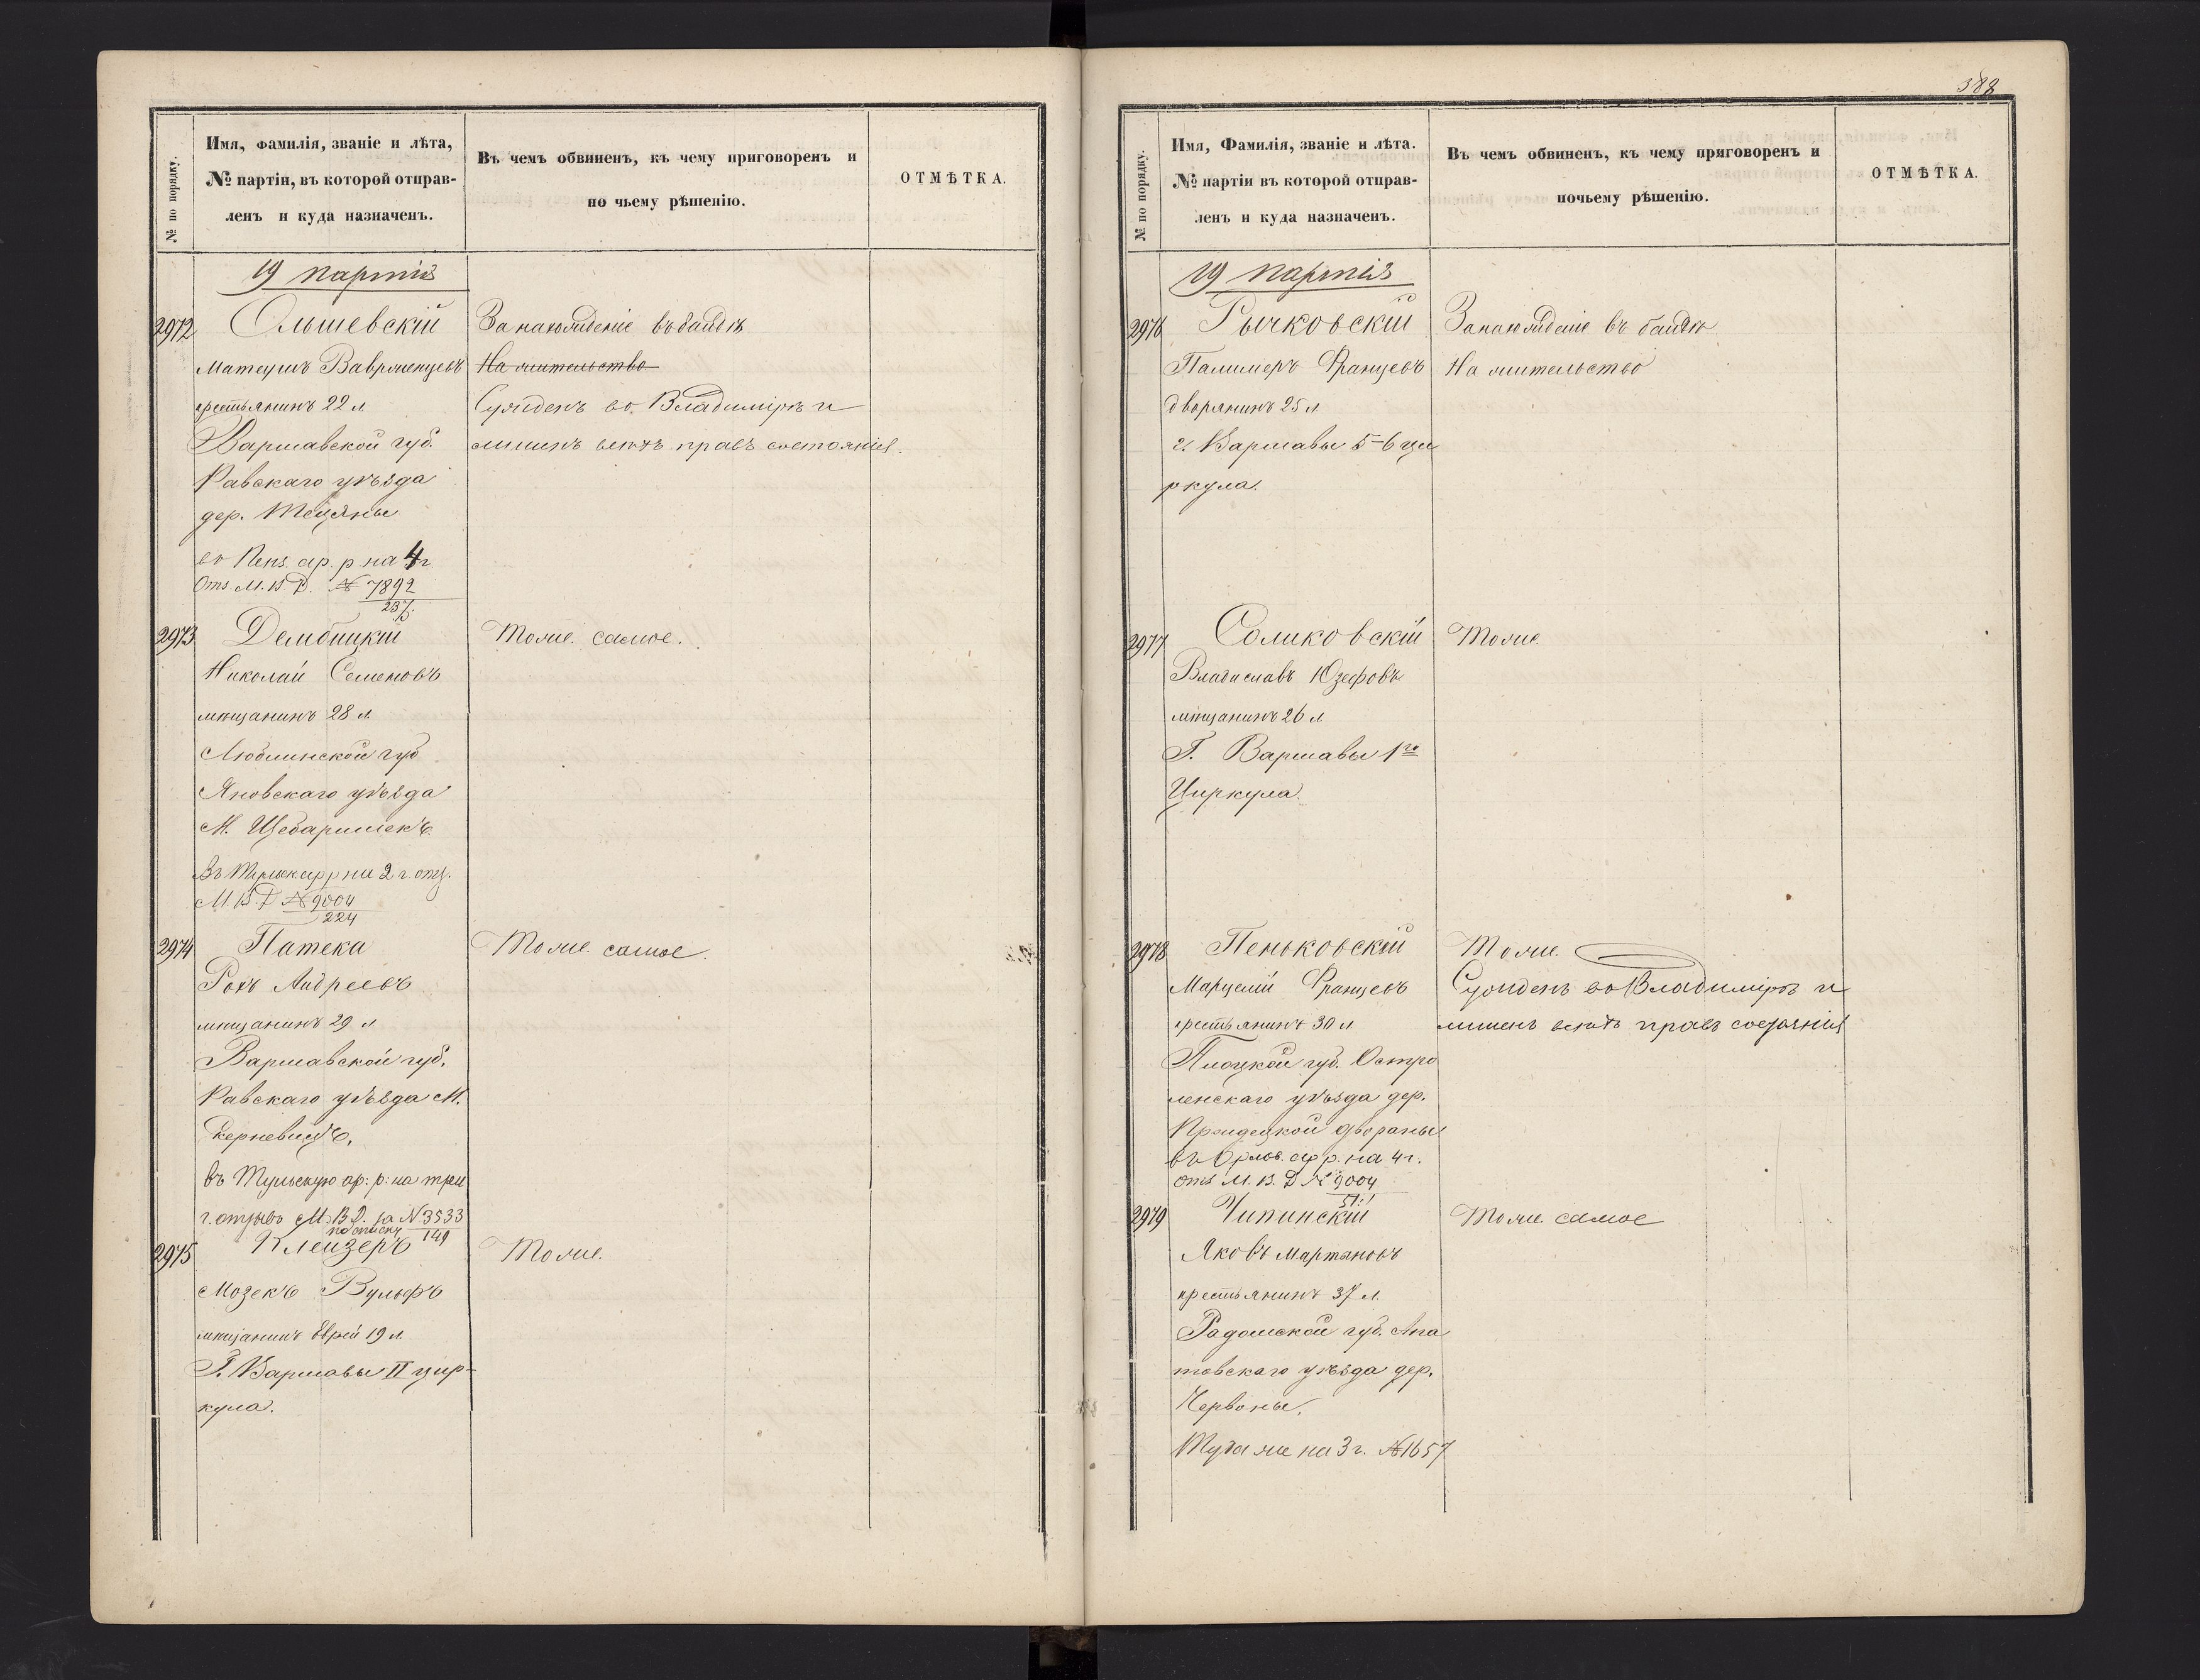 № по порядку.
Имя, фамилія, званіе и лѣта,
№ партіи, въ которой отправ-
ленъ и куда назначенъ.
Въ чемъ обвиненъ, къ чему приговоренъ и
по чьему рѣшенію.
ОТМѢТКА.
19 партія
2972
Ольшевскій
Матеушъ Вавржен­цевъ
крестьянинъ 22 л.
Варшавской губ.
Равскаго уѣзда
дер.
во Пенз. ар. р. на 4 г.
Отз М. В. Д. № 7892
237.
За нахожденіе въ бандѣ
На жительство
Сужденъ во Владимірѣ и
лишенъ всѣхъ правъ состоянія.
2973
Дембицкій
Николай Семеновъ
мѣщанинъ 28 л.
Люблинской губ
Яновскаго уѣзда
М. Щебаршекъ
на 2 г. отз.
М. В. Д № 9004
224
Тоже самое.
2974
Патека
Рохъ Андреевъ
мѣщанинъ 29 л
Варшавской губ.
Равскаго уѣзда М.
Скерневицъ.
въ Тульскую ар: р: на три
г. отзывъ М. В. Д. за № 3533
по списку 149
Тоже самое.
2975
Клейзеръ
Мозекъ Вульфъ
мѣщанинъ Еврей 19 л.
Г. Варшавы II цир-
кула.
Тоже.
588
№ по порядку.
Имя, Фамилія, званіе и лѣта.
№ партіи въ которой отправ-
ленъ и куда назначенъ.
Въ чемъ обвиненъ, къ чему приговоренъ и
почьему рѣшенію.
ОТМѢТКА.
19 партія
2976
Рычковскій
Францевъ
дворянинъ 25 л
г. Варшавы 5-6 ци
ркула.
За нахожденіе въ бандѣ
На жительство
2977
Соликовскій
Владиславъ Юзефовъ
мѣщанинъ 26 л
Г. Варшавы 1го
Циркула.
Тоже.
2978
Пеньковскій
Марцелій Францевъ
крестьянинъ 30 л.
Плоцкой губ. Остро
ленскаго уѣзда дер.
двораны
въ Орлов. ар р. на 4 г.
отз М. В. Д № 9004
51.
Тоже.
Сужденъ во Владимірѣ и
лишенъ всѣхъ правъ состоянія
2979
Чипинскій
Яковъ Мартановъ
крестьянинъ 37 л.
Радомской губ. Апа
товскаго уѣзда дер.
Червоны.
Туда же на 3 г. № 1657
Тоже самое